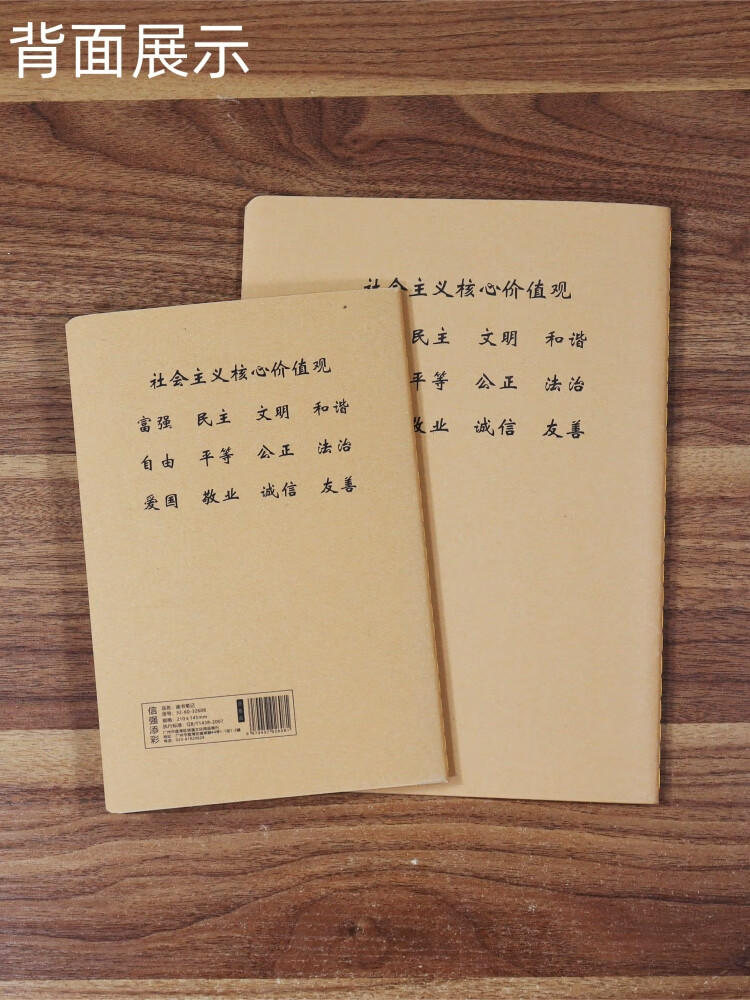 背面展示
社会主义核心价值观
民主 文明 和谐
平等 公正 法治
敬业 诚信 友善
社会主义核心价值观
富强 民主 文明 和谐
自由 平等 公正 法治
爱国 敬业 诚信 友善
信强添彩
规格: 210x145mm
执行标准: GB/T1438-2007